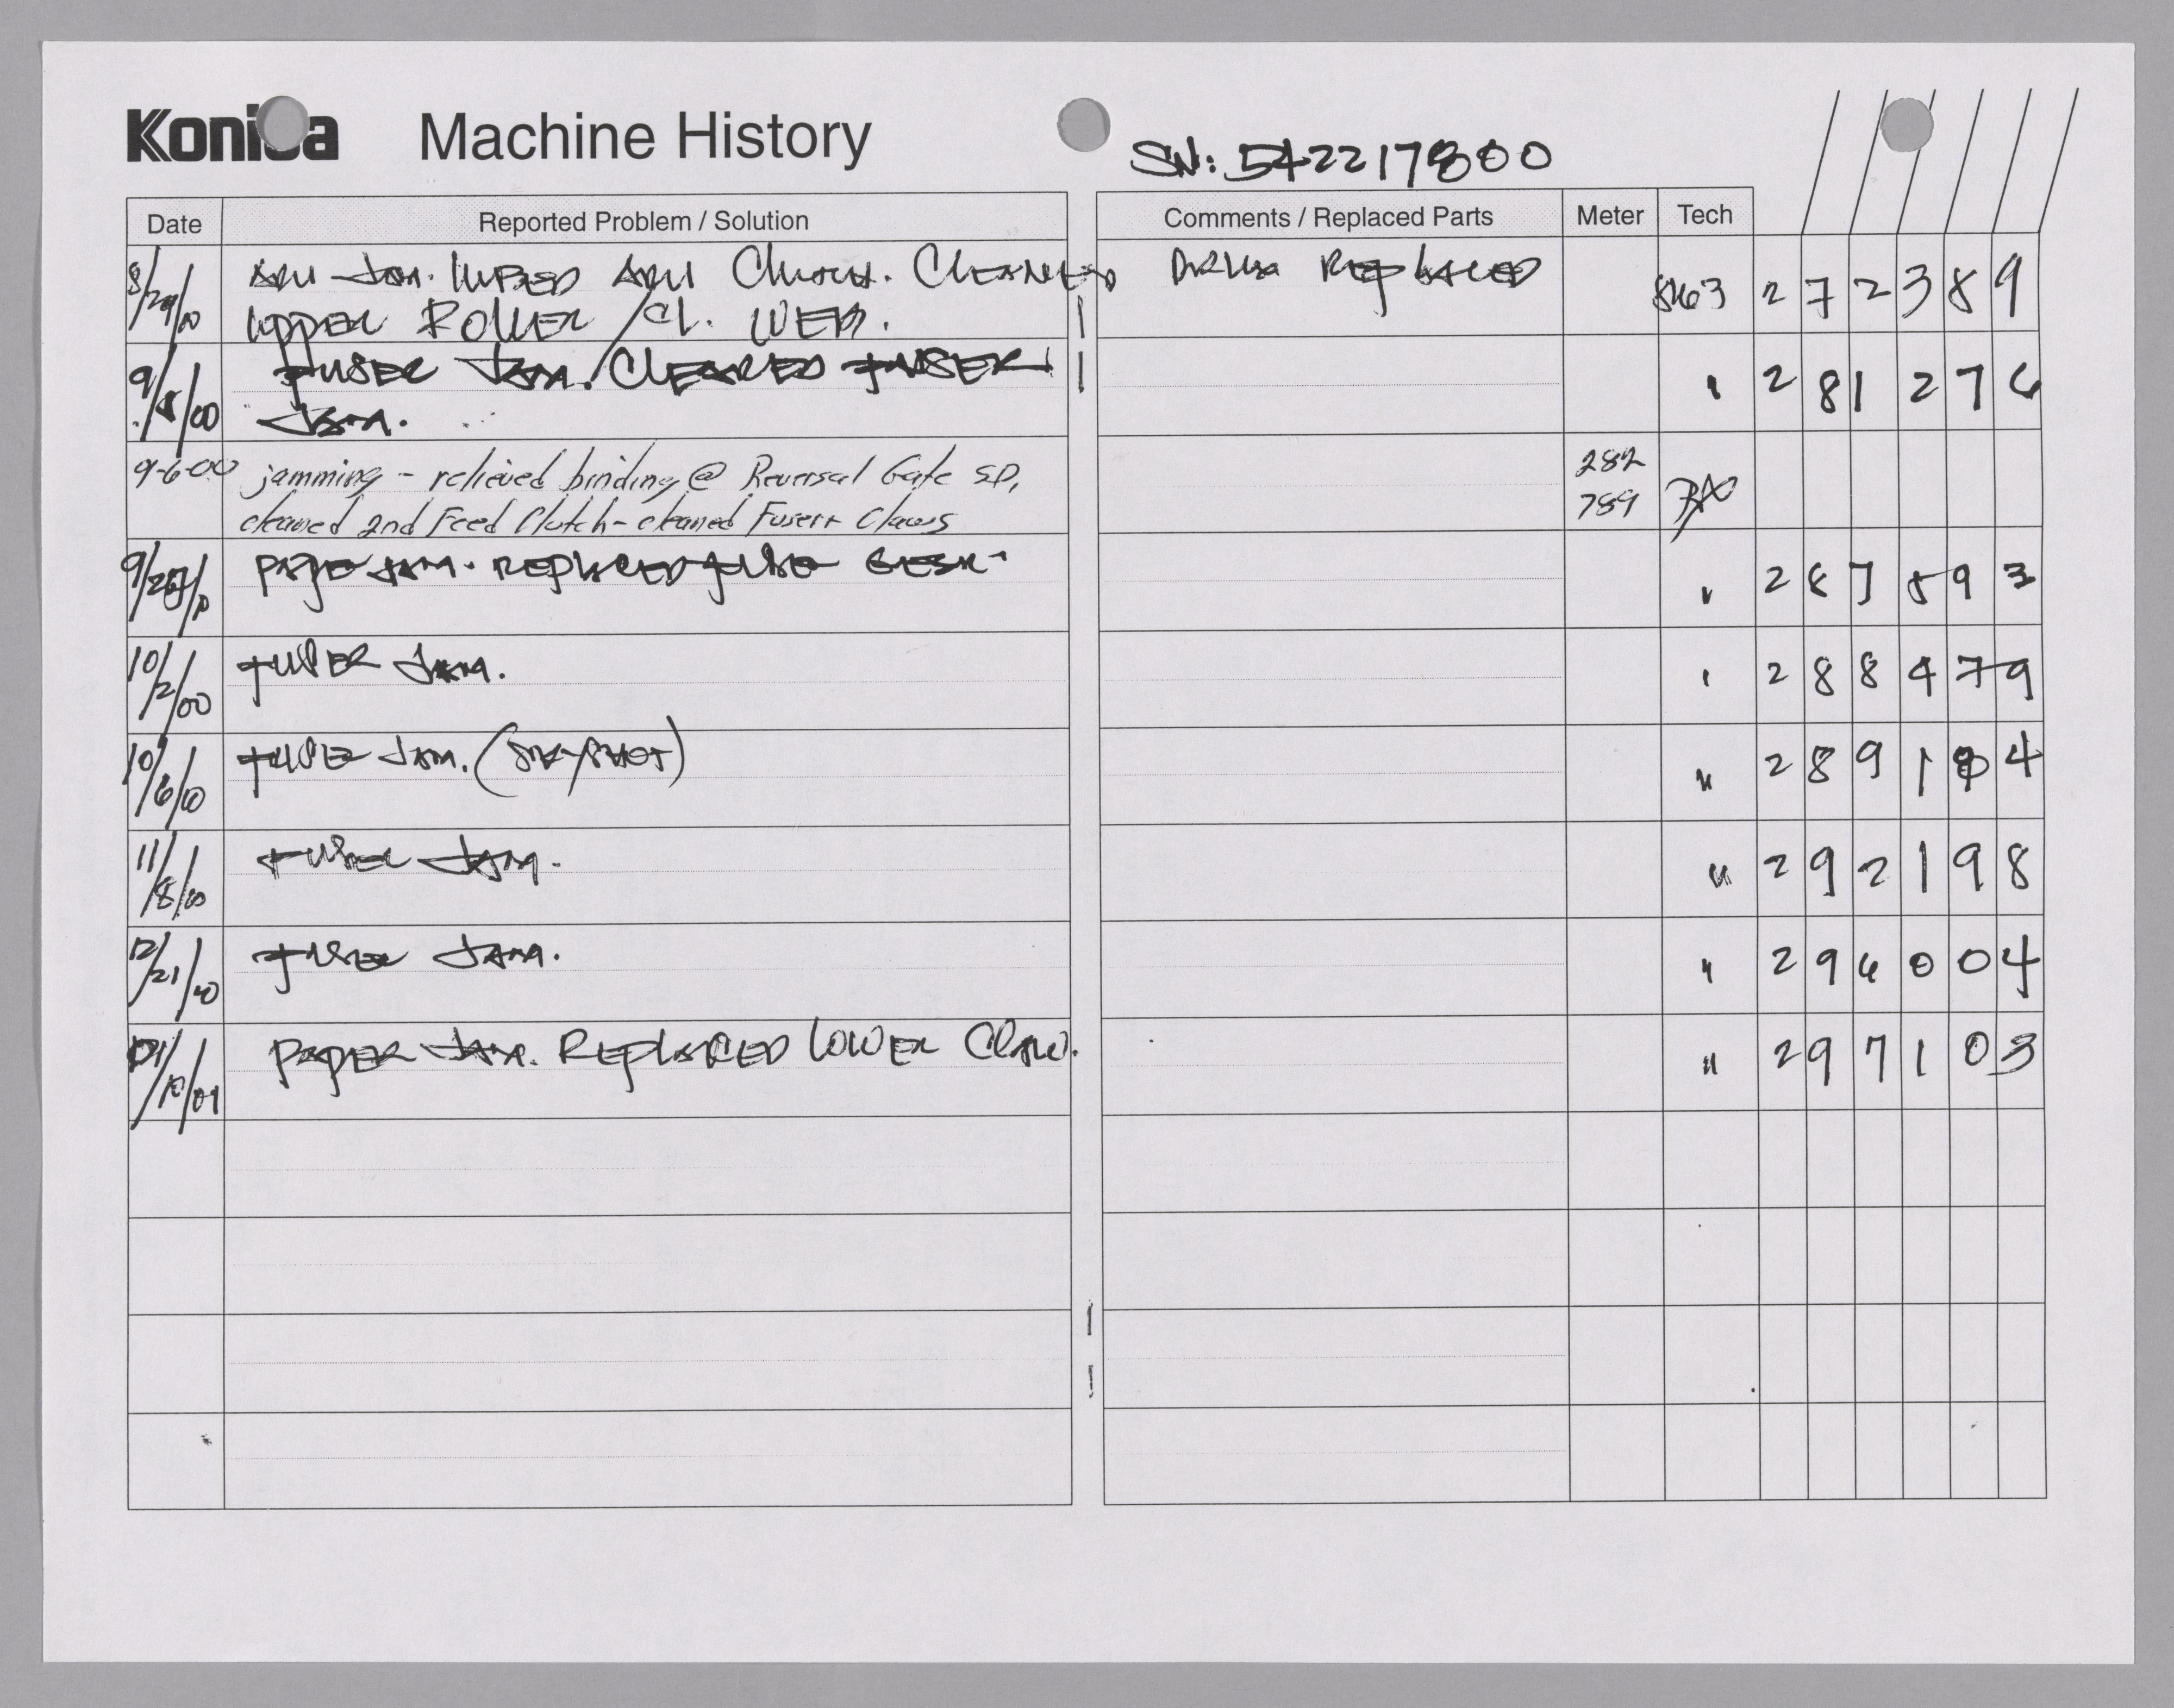 Konica Machine History
SN: 542217800
Date Reported Problem / Solution Comments / Replaced Parts Meter Tech
8/29/00 ADU JAM. WIPED ADU Clutch. CLEANED DRUM REPLACED 8163 2 7 2 3 8 9
UPPER ROLLER / CL. WEB.
9/5/00 FUSER JAM. CLEARED FUSER 2 8 1 2 7 6
JAM.
9-6-00 jamming - relieved binding @ Reversal Gate SD, 282
cleaned 2nd Feed Clutch - cleaned Fuser Claws 789
PAPER JAM. REPLACED 2 8 7 5 9 3
10/2/00 FUSER JAM. 2 8 8 4 7 9
10/6/00 FUSER JAM. 2 8 9 1 4
11/8/00 FUSER JAM. " 2 9 2 1 9 8
12/21/00 FUSER JAM. " 2 9 6 0 0 4
/10/01 PAPER JAM. REPLACED LOWER CLAW. " 2 9 7 1 0 3